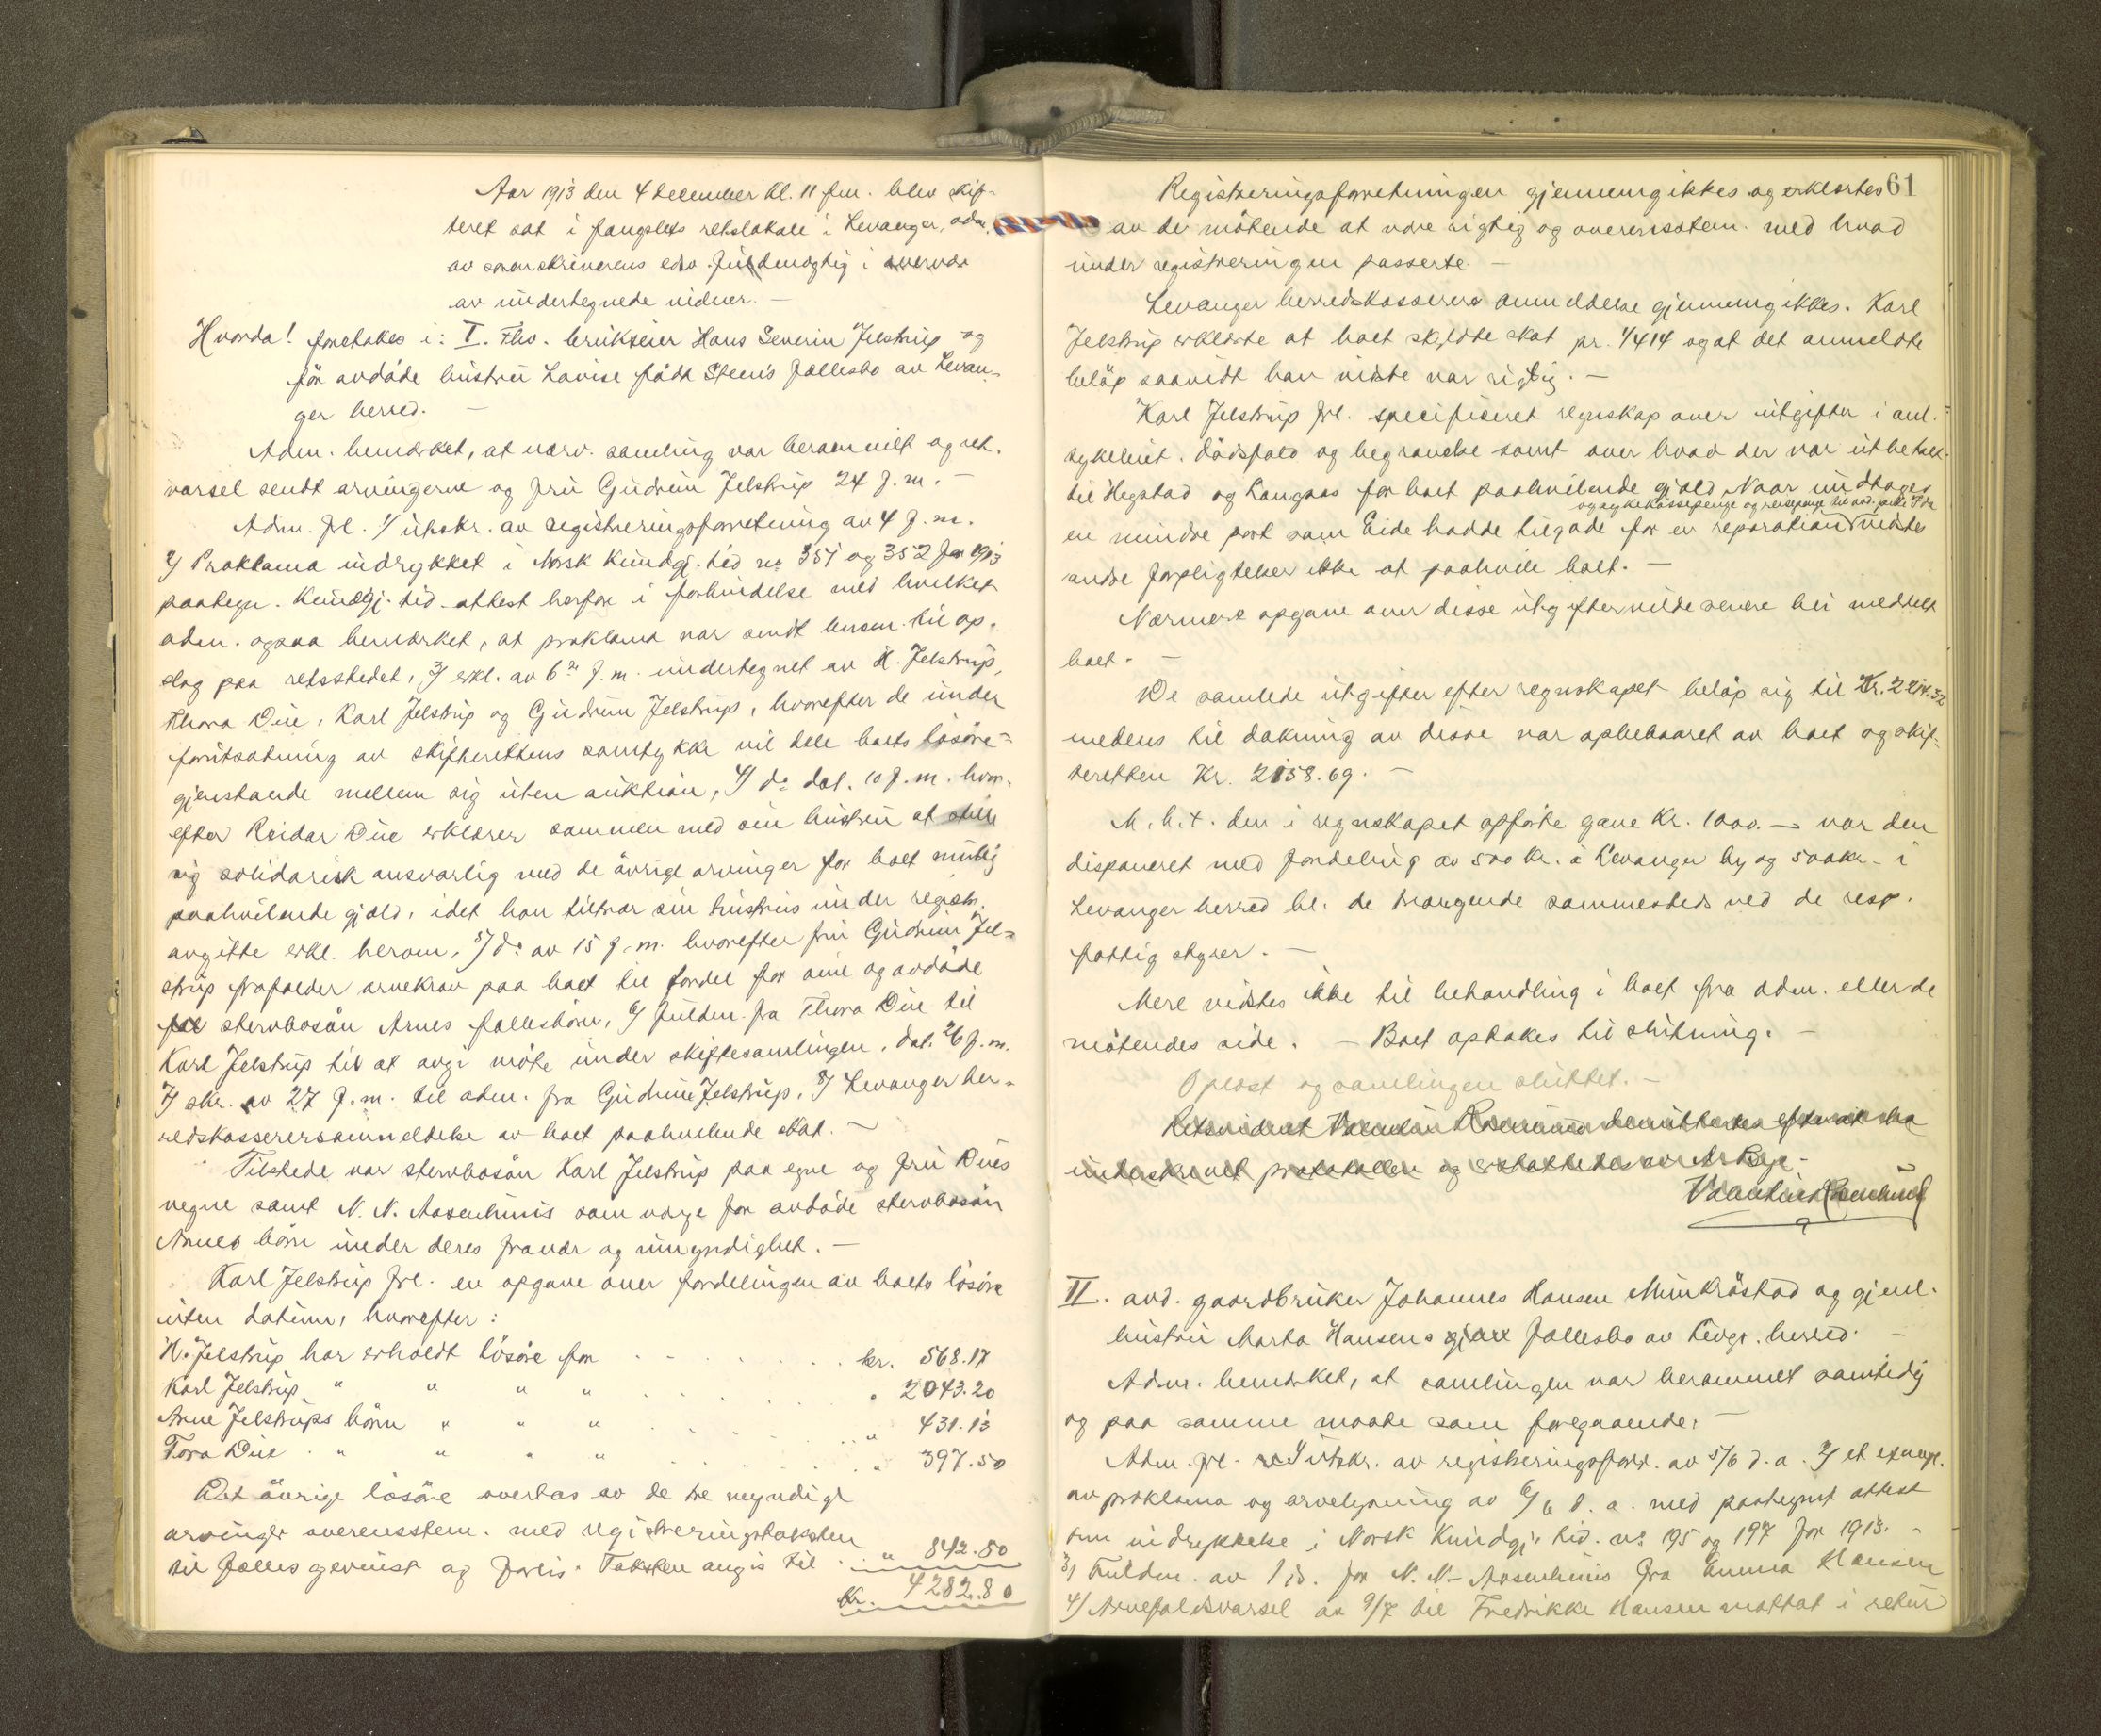 Aar 1913 den 4 December kl. 11 fm. blev skif-
teret sat i fængslets retslokale i Levanger, adm.
av sorenskriverens edsv. fuldmægtig i overvær
av undertegnede vidner. —
Hvorda! foretokes i: I. Fhv. brukseier Hans Severin Jelstrup og
før avdøde hustru Lovise født Steens fællesbo av Levan-
ger herred. —
Adm. bemærket, at nærv. samling var berammet og ret.
varsel sendt arvingerne og fru Gudrun Jelstrup 24 f. m. —
Adm. frl. 1/ utskr. av registreringsforretning av 4 f. m.
2/ Proklama indrykket i Norsk Kundgj. tid no 351 og 352 for 1913
paategn. Kundgj. tid. attest herfor i forbindelse med hvilket
adm. ogsaa bemærket, at proklama var sendt lensm. til op-
slag paa retsstedet, 3/ erkl. av 6te f. m. undertegnet av H. Jelstrup,
Thora Due, Karl Jelstrup og Gudrun Jelstrup, hvorefter de under
forutsætning av skifterettens samtykke vil dele boets løsøre-
gjenstande mellem sig uten auktion, 4/ do dat. 10 f. m. hvor-
efter Reidar Due erklærer sammen med sin hustru at stille
sig solidarisk ansvarlig med de øvrige arvinger for boet mulig
paahvilende gjæld, idet han tiltrær sin hustrus under registr.
avgitte erkl. herom, 5/ do av 15 f. m. hvorefter fru Gudrun Jel-
strup frafalder arvekrav paa boet til fordel for sine og avdøde
stervbosøn Arnes fællesbørn, 6/ fuldm. fra Thora Due til
Karl Jelstrup til at avgi møte under skiftesamlingen, dat. 26 f. m.
7/ skr. av 27 f. m. til adm. fra Gudrun Jelstrup, 8/ Levanger her-
redskasserersanmeldelse av boet paahvilende skat. —
Tilstede var stervbosøn Karl Jelstrup paa egne og fru Dues
vegne samt N. N. Aasenhuus som verge for avdøde stervbosøn
Arnes børn under deres fravær og umyndighet. —
Karl Jelstrup frl. en opgave over fordelingen av boets løsøre
uten datum, hvorefter:
H. Jelstrup har erholdt løsøre for . . . . . . kr. 568.17
Karl Jelstrup " " " " . . . . . " 2043.20
Arne Jelstrups børn " " " . . . . . " 431.13
Tora Due " " " " . . . . . " 397.50
Det øvrige løsøre overtas av de tre myndige
arvinger overensstem. med registreringstaksten
til fælles gevinst og forlis. Taksten angis til . . " 842.80
Kr. 4282.80
61
Registreringsforretningen gjennemgikkes og erklærtes
av de møtende at være rigtig og overensstem. med hvad
under registreringen passerte. —
Levanger herredskasserers anmeldelse gjennemgikkes. Karl
Jelstrup erklærte at boet skyldte skat pr. 1/4 14 og at det anmeldte
beløp saavidt han vidste var rigtig. —
Karl Jelstrup frl. specificeret regnskap over utgifter i anl.
sykeleiet, dødsfald og begravelse samt over hvad der var utbetalt
til Hegstad og Langaas for boet paahvilende gjæld. Naar undtages
og sykekassepenge og reisepenge til avd. pike Ida
en mindre post som Eide hadde tilgode for en reparation vidstes
andre forpligtelser ikke at paahvile boet. —
Nærmere opgave over disse utgifter vilde senere bli meddelt
boet. —
De samlede utgifter efter regnskapet beløp sig til Kr. 2214.32
medens til dækning av disse var ophebaaret av boet og skif-
teretten Kr. 2158.69. —
M. h. t. den i regnskapet opførte gave kr. 1000. — var den
disponeret med fordeling av 500 kr. i Levanger by og 500 kr. i
Levanger herred bl. de trængende sammesteds ved de resp.
fattigstyrer. —
Mere vidstes ikke til behandling i boet fra adm. eller de
møtendes side. — Boet optokes til slutning. —
Oplæst og samlingen sluttet. —
Retsvidnet Valentin demitteres efter at ha
underskrevet protokollen og erstattedes av
Valentin
II. avd. gaardbruker Johannes Hansen Munkrøstad og gjenl.
hustru Marta Hansens fællesbo av Levgr. herred. —
Adm. bemærket, at samlingen var berammet samtidig
og paa samme maate som foregaaende. —
Adm. frl. 1/ utskr. av registreringsforr. av 5/6 d. a. 2/ et exempl.
av proklama og arvelysning av 6/6 d. a. med paategnet attest
om indrykkelse i Norsk Kundgj. tid. no 195 og 197 for 1913. —
3/ Fuldm. av 1/ds. for N. N. Aasenhuus fra Emma Hansen
4/ Arvefaldsvarsel av 9/7 til Fredrikke Hansen mottat i retur